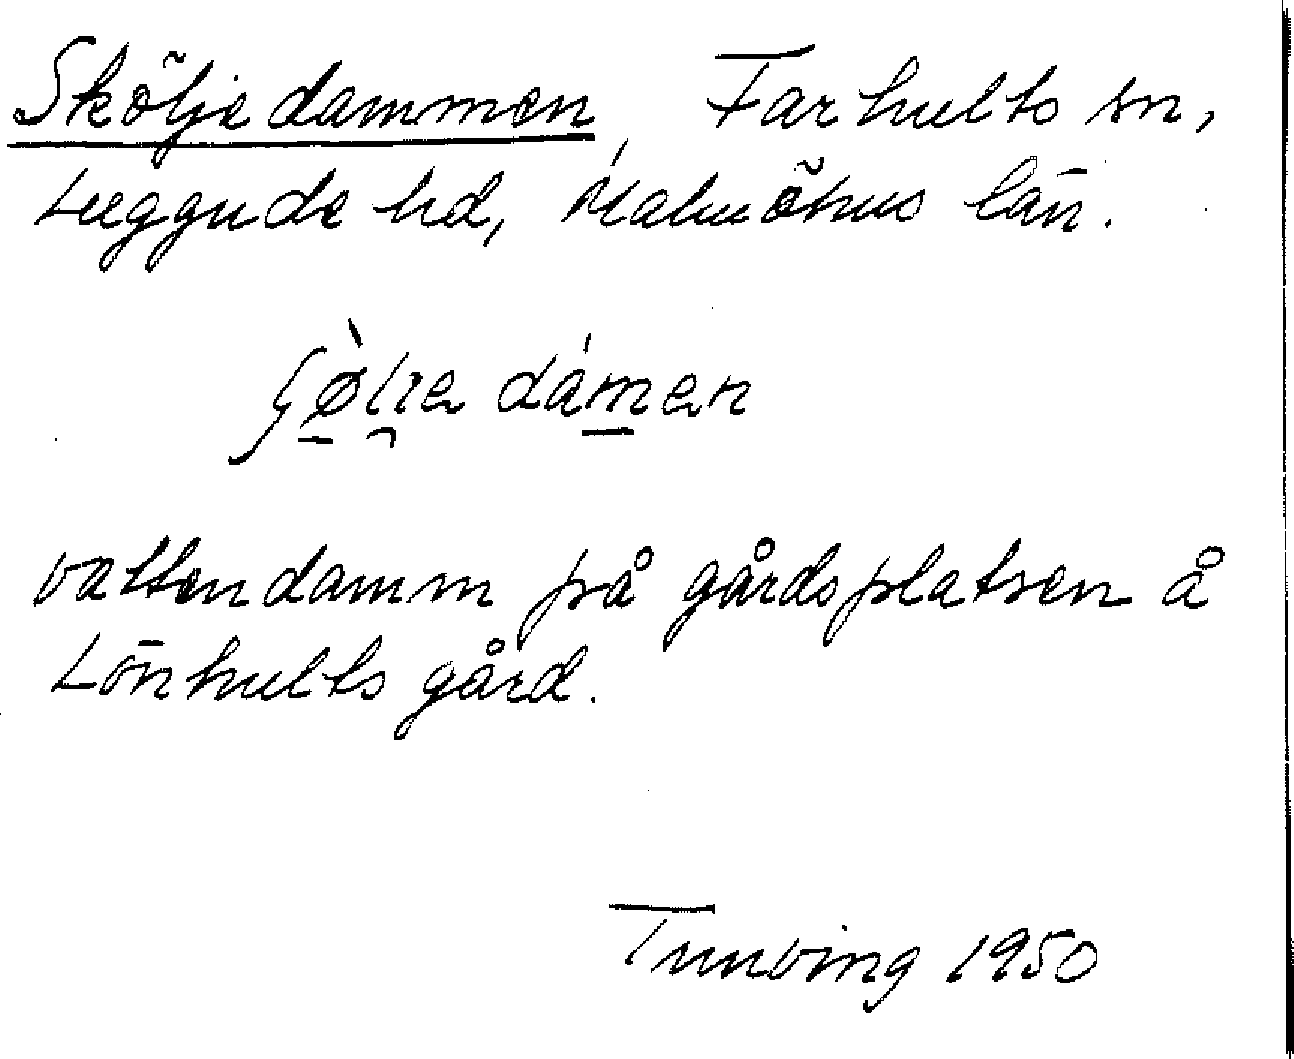 Sköljedammen, Farhults sn,
Luggude hd, Malmöhus län.
ʃø̀lı̯e dámen
vattendamm på gårdsplatsen å
Lönhults gård.
Tunving 1950